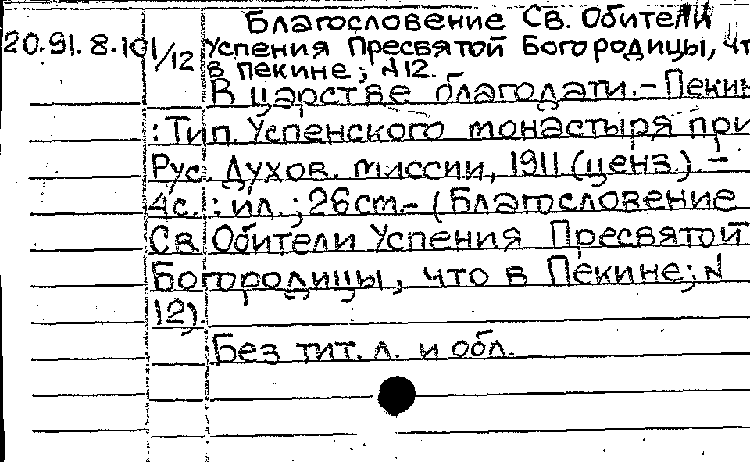 Благословение Св. Обители
20.91.8.101/12 Успения Пресвятой Богородицы, чт
в Пекине; N12.
В царстве благодати. - Пекин
: Тип. Успенского монастыря при
Рус. Духов. миссии, 1911 (ценз.). -
4с.: ил.; 26см. - (Благословение
Св Обители Успения Пресвятой
Богородицы, что в Пекине; N
12).
Без тит. л. и обл.